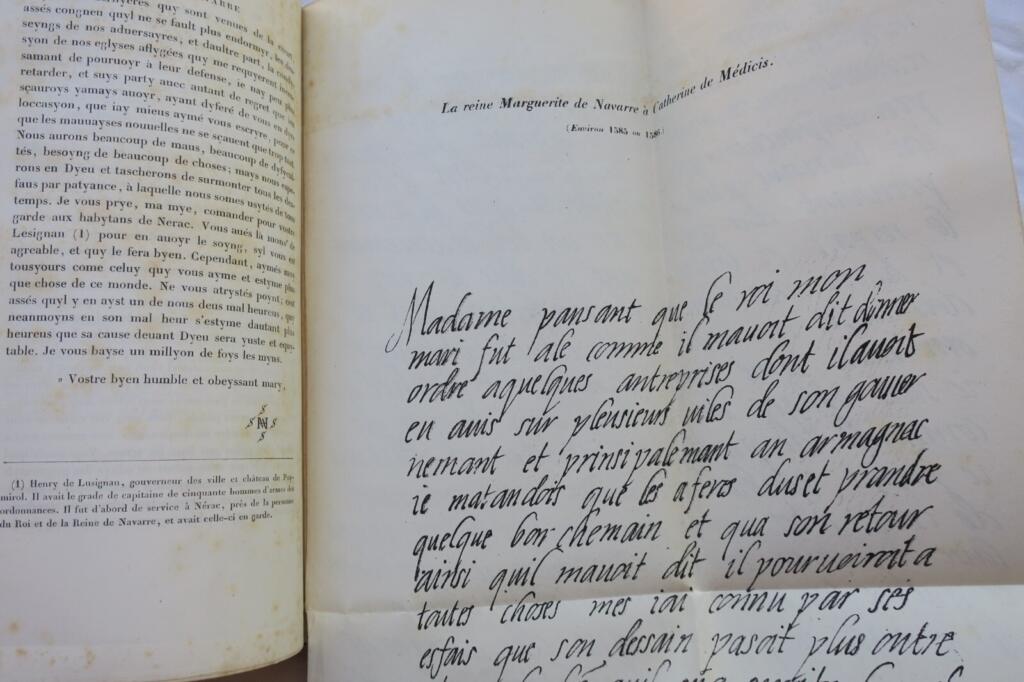 NAVARRE
quy sont venues de la
assés congneu quyl ne se fault plus endormyr, les
seyngs de nos aduersayres, et daultre part, la
syon de nos eglyses aflygées quy me requyerent
samant de pouruoyr à leur defense, ie nay peu plus
retarder, et suys party auec autant de regret que
sçauroys yamays auoyr, ayant dyferé de vous en dyre
loccasyon, que iay mieus aymé vous escryre, pour ce
que les mauuayses nouuelles ne se sçauent que trop tost.
Nous aurons beaucoup de maus, beaucoup de dyfycul-
tés, besoyng de beaucoup de choses; mays nous espe-
rons en Dyeu et tascherons de surmonter tous les des-
faus par patyance, à laquelle nous somes usytés de tous
temps. Je vous prye, ma mye, comander pour vostre
garde aux habytans de Nerac. Vous aués là monsr de
Lesignan (1) pour en auoyr le soyng, syl vous est
agreable, et quy le fera byen. Cependant, aymés moy
tousyours come celuy quy vous ayme et estyme plus
que chose de ce monde. Ne vous atrystés poynt; c'est
assés quyl y en ayst un de nous deus mal heureus, quy
neanmoyns en son mal heur s'estyme dautant plus
heureus que sa cause deuant Dyeu sera yuste et equy-
table. Je vous bayse un millyon de foys les myns.
» Vostre byen humble et obeyssant mary,
(1) Henry de Lusignan, gouverneur des ville et château de Puy-
mirol. Il avait le grade de capitaine de cinquante hommes d'armes des
ordonnances. Il fut d'abord de service à Nérac, près de la personne
du Roi et de la Reine de Navarre, et avait celle-ci en garde.
La reine Marguerite de Navarre à Catherine de Médicis.
(Environ 1585 ou 1586.)
Madame pansant que le roi mon
mari fut alé comme il mauoit dit donner
ordre aquelques antreprises dont il auoit
en auis sur plensieurs uiles de son gouuer
nemant et prinsipalemant an armagnac
ie matandois que les aferes duset prandre
quelque bon chemain et qua son retour
ainsi quil mauoit dit il pouruoiroit a
toutes choses mes iai connu par ses
esfais que son dessain pasoit plus outre